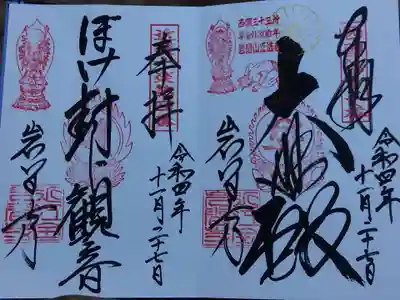 奉拝
令和四年
十一月二十七日
西国三十三所
大悲殿
岩間寺
奉拝
令和四年
十一月二十七日
ぼけ封じ観音
岩間寺